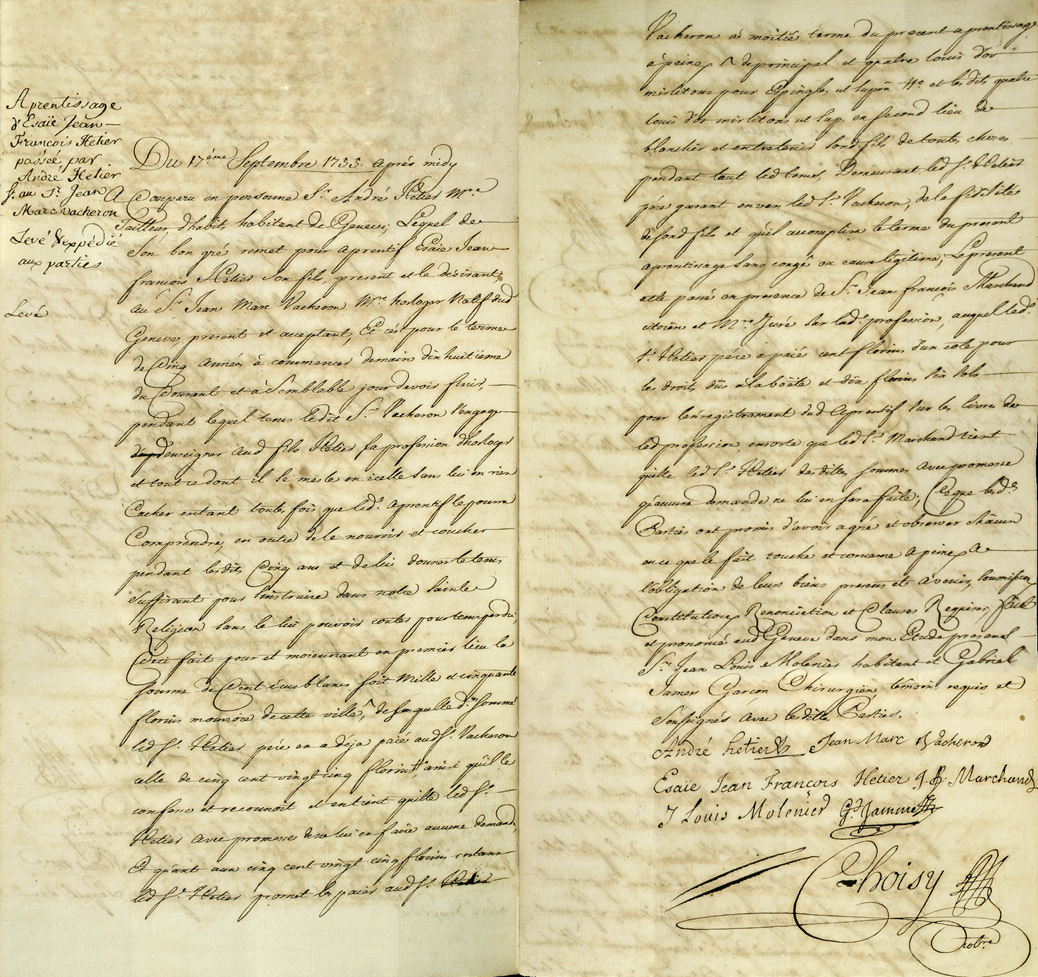 Aprentissage
d'Esaïe Jean
François Hetier
passée, par
André Hetier
au Sr. Jean
Marc Vacheron
Levé & expedié
aux parties
Levé
Du 17ème Septembre 1733 après midy
Comparu en personne Sr. André Hetier Mre
Tailleur d'habit habitant de Geneve; Lequel de
Son bon gré remet pour Aprentif Esaïe Jean
françois Hetier son fils present et le desirant,
au Sr. Jean Marc Vacheron Mre horloger Natif dud
Geneve, present et acceptant, Et ce pour le terme
de Cinq Années à commencer demain dixhuitième
du Courant et à Semblable jour devoir finir,
pendant lequel tems ledit Sr. Vacheron s'engage
d'enseigner aud fils Hetier sa profession d'horloger
et tout ce dont il se mesle en icelle sans lui en rien
Cacher entant toute fois que led. aprentif le pourra
Comprendre, en outre de le nourrir et coucher
pendant lesdits Cinq ans et de lui donner le tems
Suffisant pour s'instruire dans notre Sainte
Religion sans le lui pouvoir conter pour tems perdu
Ceci fait pour et moienant en premier lieu la
Somme de Cent écus blancs soit Mille et cinquante
florins monoye de cette ville, de laquelle d. somme
led Sr. Hetier pére en a déja paié aud Sr. Vacheron
celle de cinq cent vingt cinq florins ainsi qu'il le
confesse et reconnoit et en tient quitte led Sr.
Hetier avec promesse de ne lui en faire aucune demande,
Et quant aux cinq cent vingt cinq florins restans
led Sr. Hetier promet les paier aud Sr.
Vacheron à moitié terme du present aprentissage
à peine de principal et quatre louis d'or
mirlitons pour Epingle, ut supra et lesdits quatre
louis d'or mirlitons ut sup. en second lieu de
blanchir et entretenir sond fils de toutes choses
pendant tout led tems, Demeurant led Sr. Hetier
pere garant envers led Sr. Vacheron, de la fidelité
de sond fils et qu'il accomplira le terme du present
aprentissage sans congé ou cause legitime, Le present
acte passé en presence de Sr. Jean françois Marchand
citoien et Mre Juré sur lad. profession, auquel led.
Sr. Hetier pére a paié cent florins d'un coté pour
les droits dûs à la boëte et dix florins six sols
pour l'enregistrement dud Aprentif sur les livres de
lad profession ensorte que led Sr. Marchand tient
quitte led Sr. Hetier desdites sommes avec promesse
qu'aucune demande ne lui en sera faite; Ce que lesd.
Parties ont promis d'avoir a gré et observer chacun
en ce que le fait touche et concerne à peine
l'obligation de leurs biens presens et à venir, soumission
Constitution, Renonciation et Clauses Requises, fait
et prononcé aud Geneve dans mon Etude present
Sr. Jean Louis Molenier habitant et Gabriel
James Garcon Chirurgien, temoins requis et
Sousignés avec lesdittes Parties.
André hetier Jean Marc Vacheron
Esaïe Jean François Hetier J. f. Marchand
J Louis Molenier Gl. Jamme
Choisy
Notre